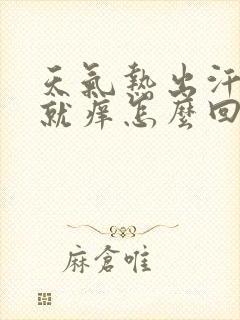 天氣熱出汗
就痒怎麼回
麻倉唯